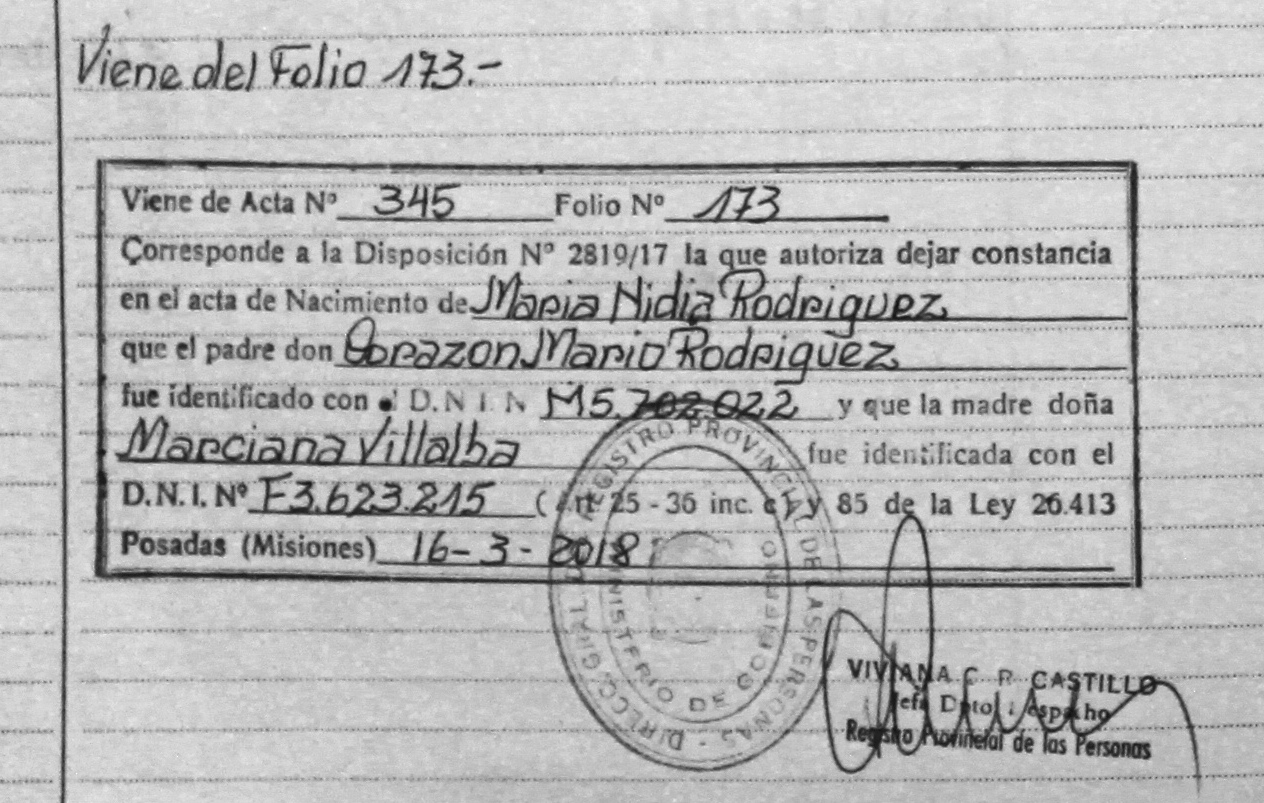 Viene del Folio 173.-
Viene de Acta Nº 345 Folio Nº 173
Corresponde a la Disposición Nº 2819/17 la que autoriza dejar constancia
en el acta de Nacimiento de Maria Nidia Rodriguez
que el padre don Corazon Mario Rodriguez
fue identificado con el D.N.I.N M5.702.022 y que la madre doña
Marciana Villalba fue identificada con el
D.N.I. Nº F3.623.215 (Art. 25 - 36 inc. c) y 85 de la Ley 26.413
Posadas (Misiones) 16-3-2018
REGISTRO PROVINCIAL DE LAS PERSONAS - DIRECC.
MINISTERIO DE GOBIERNO
VIVIANA C. R. CASTILLO
Jefa Dpto. Despacho
Registro Provincial de las Personas